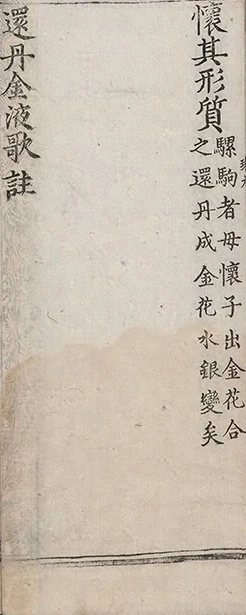 懷其形質
騾駒者母懷子出金花合
之還丹成金花水銀變矣
還丹金液歌註